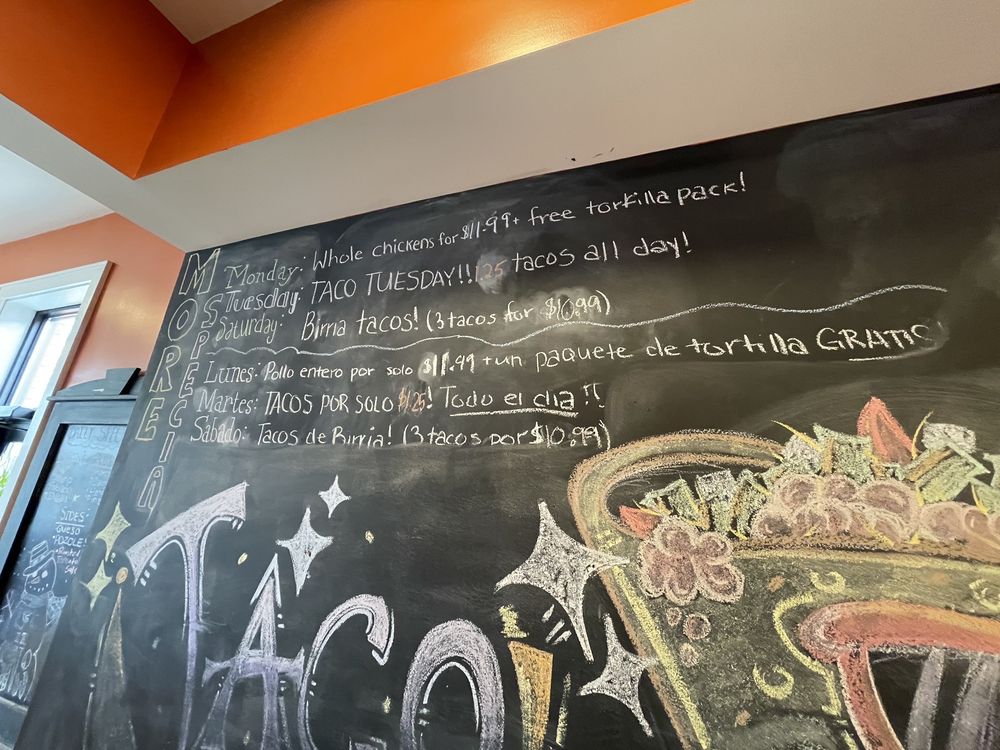 MORE SPECIALS
Monday: Whole chickens for $11.99+ free tortilla pack!
Tuesday: TACO TUESDAY!! 1.25 tacos all day!
Saturday: Birria tacos! (3 tacos for $10.99)
Lunes: Pollo entero por solo $11.99 + un paquete de tortilla GRATIS!
Martes: TACOS POR SOLO $1.25! Todo el dia!!
Sábado: Tacos de Birria! (3 tacos por $10.99)
TACO
SIDES:
QUESO
POZOLE